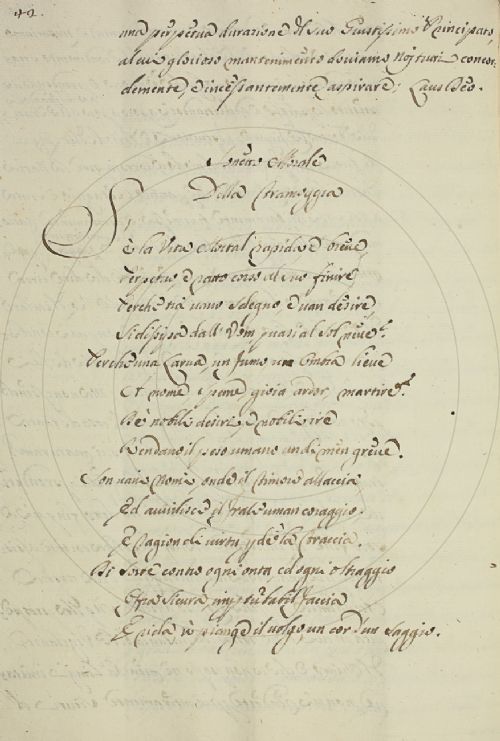 42.
una perpetua durazione del suo Giustissimo Principato,
al cui glorioso mantenimento doviamo noi tutti concor
demente, e incessantemente aspirare; Laus Deo.
Sonetto Morale
Della
Sì,
è la Vita Mortal rapida e breve,
Perpetuo e ratto corso al suo finire
Perche tra vano sdegno, e van desire
Si dissipa dall' Uom quasi al Sol neve.
Perche una Larva, un fumo un' Ombra lieve
nome e pene gioia ardor, martire
Ne è nobili desiri, e nobili ire
Rendano il peso umano un di men greve.
Son vani nomi onde il timore allaccia
Ed avvilisce il frale uman coraggio.
È ragion di virtù, ed è la traccia
Di forte contro ogni onta, ed ogni oltraggio
Alma sicura,
E rida, o piange il volgo, un cor d'un saggio.